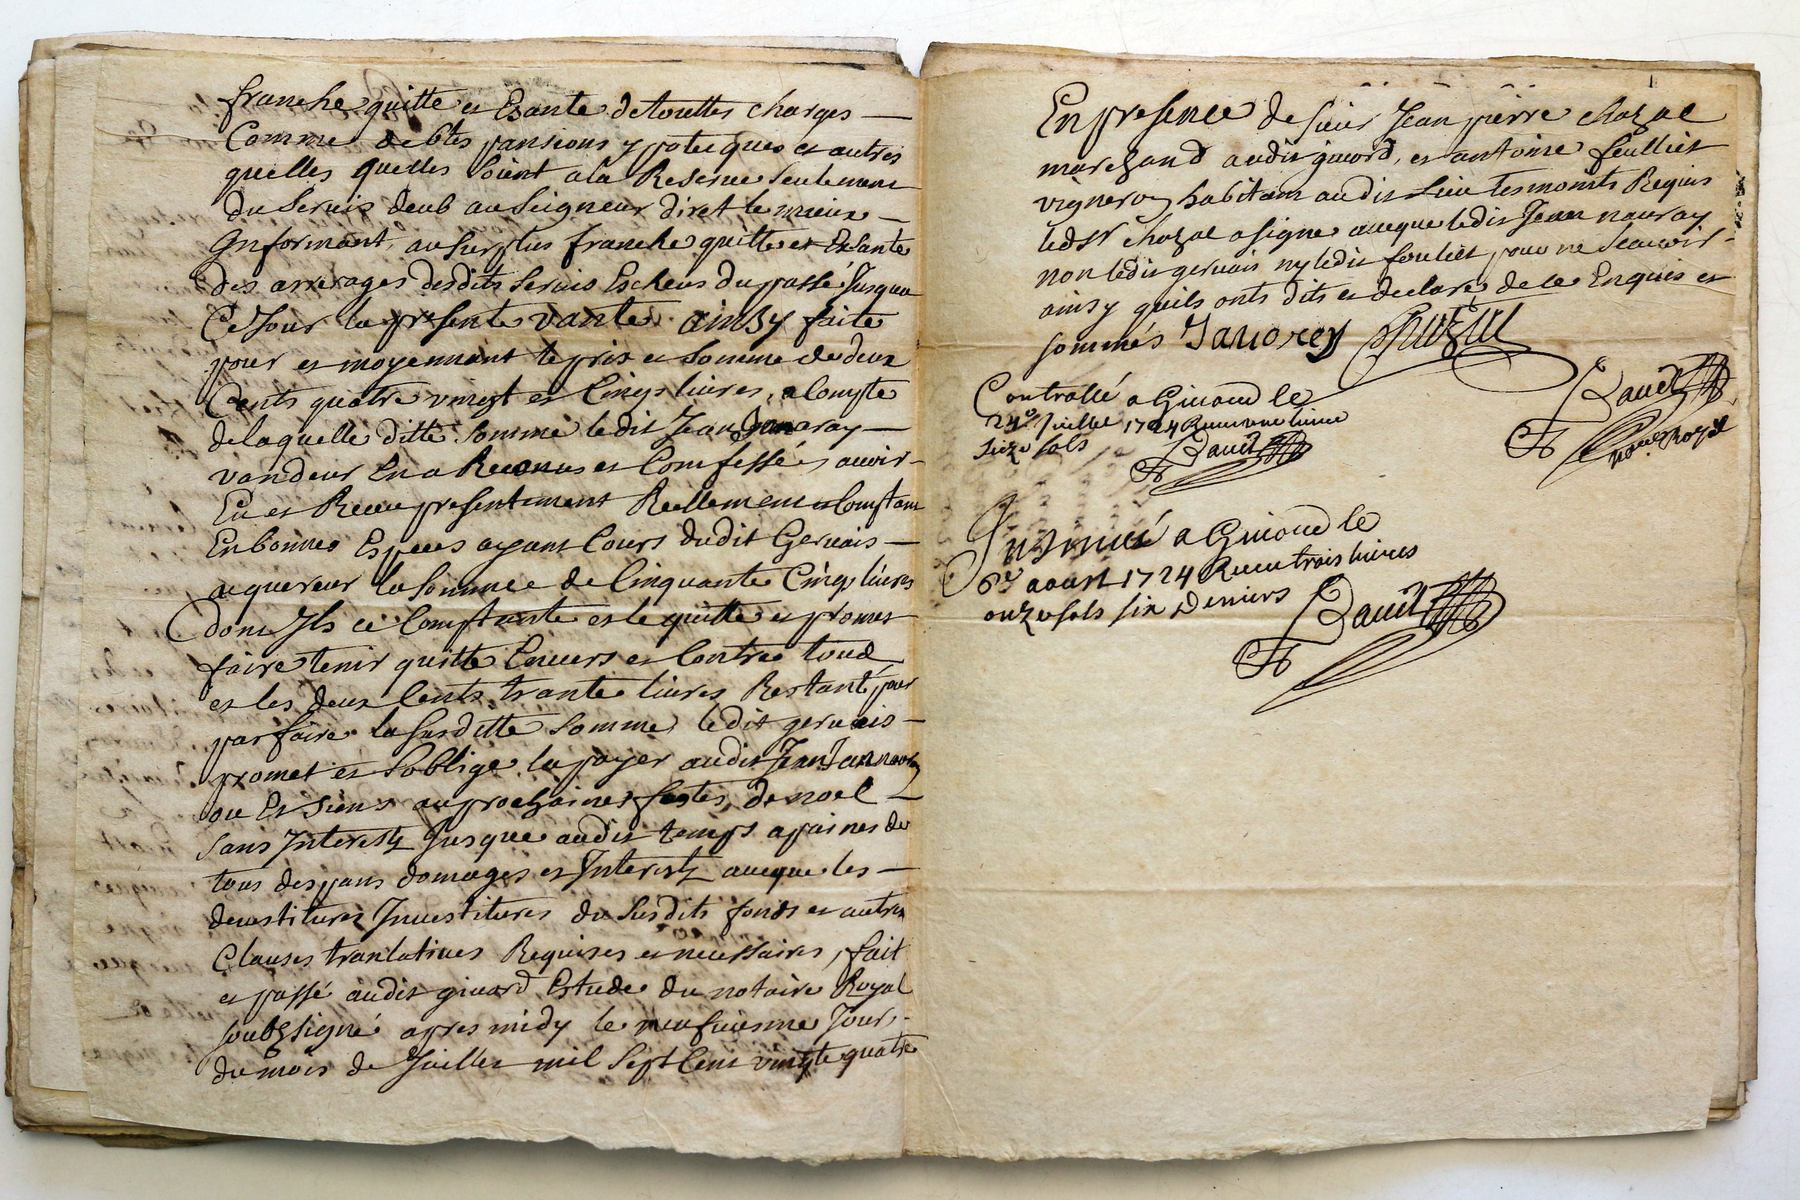 franche quitte et Exante de touttes charges
Comme debtes pansions ypoteques et autres
quelles quelles soient a la Reserve seulement
du servis deub au seigneur diret le mieux
Informant, au surplus franche quitte et Exante
des arrerages desdits servis Escheus du passé Jusqua
Ce Jour la presente vante ainsy faite
pour et moyennant le pris et somme de deux
Cents quatre vingt et Cinq livres, a Compte
de laquelle ditte somme ledit Jean Janaray
vandeur En a Reconnus et Comfessé avoir
Eu et Receu presentement Reellement et Comptant
En bonnes Especes ayant Cours dudit Gervais
aquereur la somme de Cinquante Cinq livres
dont Ils ce Comptante et le quitte et promet
faire tenir quitte Envers et Contre tous
et les deux Cents trante livres Restante pour
parfaire la susditte somme ledit gervais
promet et soblige la payer audit Jean
ou Es siens au prochaines festes de noel
sans Interestz Jusque audit temps a paines de
tous despans domages et Interestz aveque les
devestitures Investitures du susdits fonds et autres
Clauses tranlatives Requises et necessaires, fait
et passé audit givord Estude du notaire Royal
soubzsigné apres midy le neufviesme Jour
du mois de Juillet mil sept Cent vingte quatre
En presence de sieur Jean pierre chazal
marchand audit givord, et antoine feulliet
vigneron habitant audit Lieu tesmoints Requis
ledsr chazal a signe aveque ledit Jean nauray
non ledit gervais ny ledit foulliet pour ne scavoir
ainsy quils onts dits et declares de ce Enquis et
sommés Janorey Chazal
Controllé a Givord le
24e Juillet 1724 Receu une livre
seize sols
Bavit
Bavit
nore Royal
Insinué a Givord le
6e aoust 1724 Receu trois livres
onze sols six deniers
Bavit